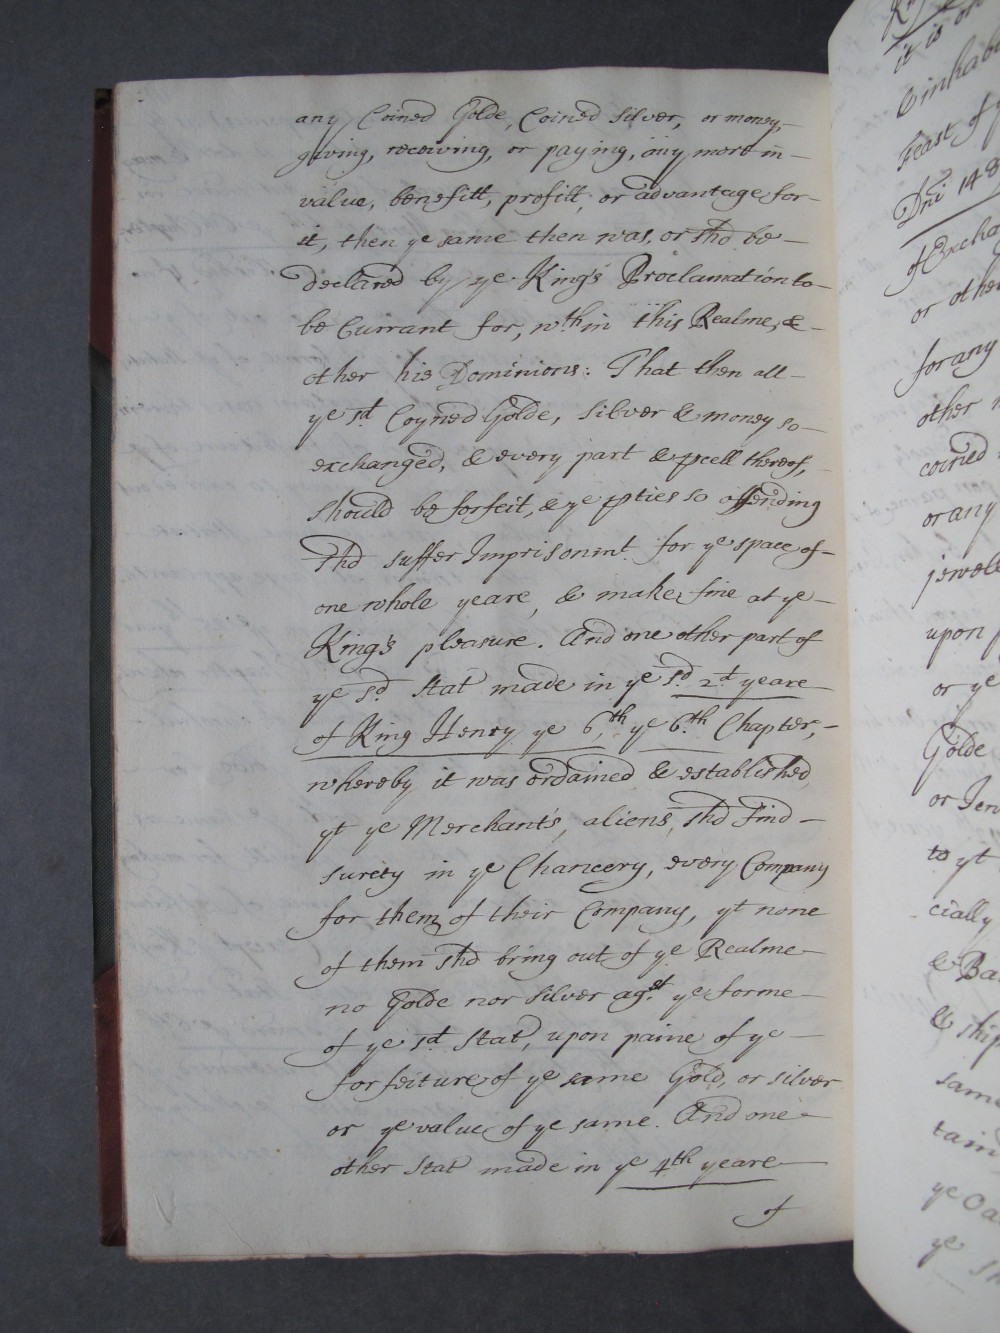 any Coined Golde, Coined silver, or money,
giving, receiving, or paying, any more in
value, benefitt, profitt, or advantage for
it, then ye same then was, or shd be
declared by ye King's Proclamation to
be Currant for, wth in this Realme, &
other his Dominions: That then all
ye sd Coyned Golde, silver & money so
exchanged, & every part & pcell thereof,
should be forfeit, & ye pties so offending
shd suffer Imprisonmt for ye space of
one whole yeare, & make fine at ye
King's pleasure. And one other part of
ye sd Stat made in ye sd 2d yeare
of King Henry ye 6th, ye 6th Chapter,
whereby it was ordained & established
yt ye Merchants, aliens, shd find
surety in ye Chancery, every Company
for them of their Company, yt none
of them shd bring out of ye Realme
no Golde nor silver agst ye forme
of ye sd Stat, upon paine of ye
forfeiture of ye same Gold, or silver
or ye value of ye same. And one
other Stat made in ye 4th yeare
of
it is or
& inhab
feast of
Dni 148
of Excha
or other
for any
other
coined
or any
jewels
upon
or ye
Golde
or
to yt
cially
& Ba
& ship
same
tain
ye Oa
ye